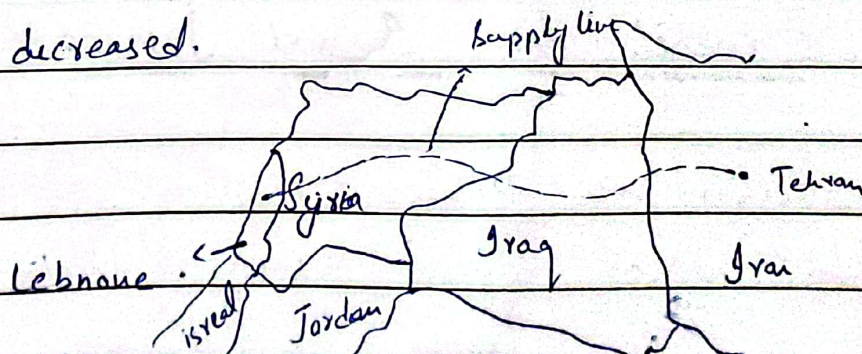 decreased.
supply line
Tehran
Syria
Iraq
Iran
Lebnone
isreal
Jordan